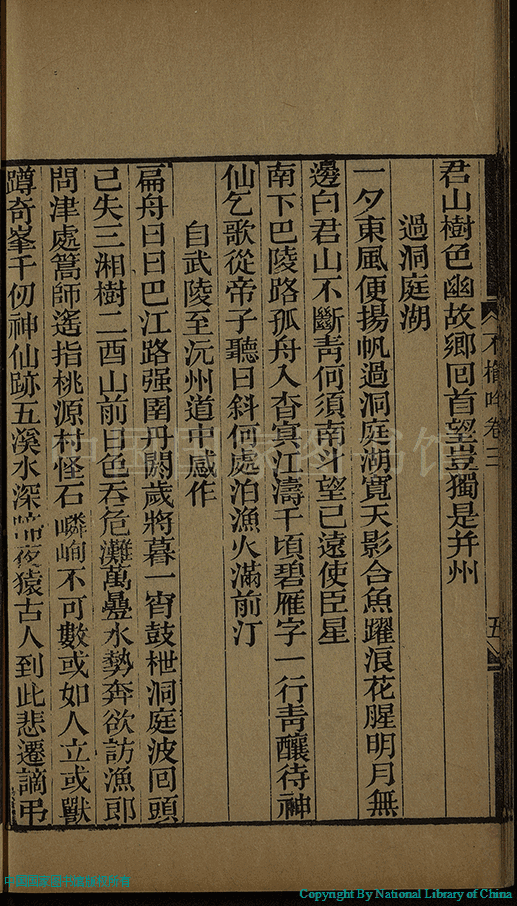 君山樹色幽故鄉回首望豈獨是并州
過洞庭湖
一夕東風便揚帆過洞庭湖寬天影合魚躍浪花腥明月無
邊白君山不斷靑何須南斗望已遠使臣星
南下巴陵路孤舟入杳冥江濤千頃碧雁字一行靑釀待神
仙乞歌從帝子聽日斜何處泊漁火滿前汀
自武陵至沅州道中感作
扁舟日日巴江路强圉丹閼歲將暮一宵鼓枻洞庭波回頭
已失三湘樹二酉山前日色吞危灘萬疊水勢奔欲訪漁郎
問津處篙師遙指桃源村怪石嶙峋不可數或如人立或獸
蹲奇峯千仞神仙跡五溪水深啼夜猿古人到此悲遷謫弔
卷三
五
中国国家图书馆
Copyright By National Library of China